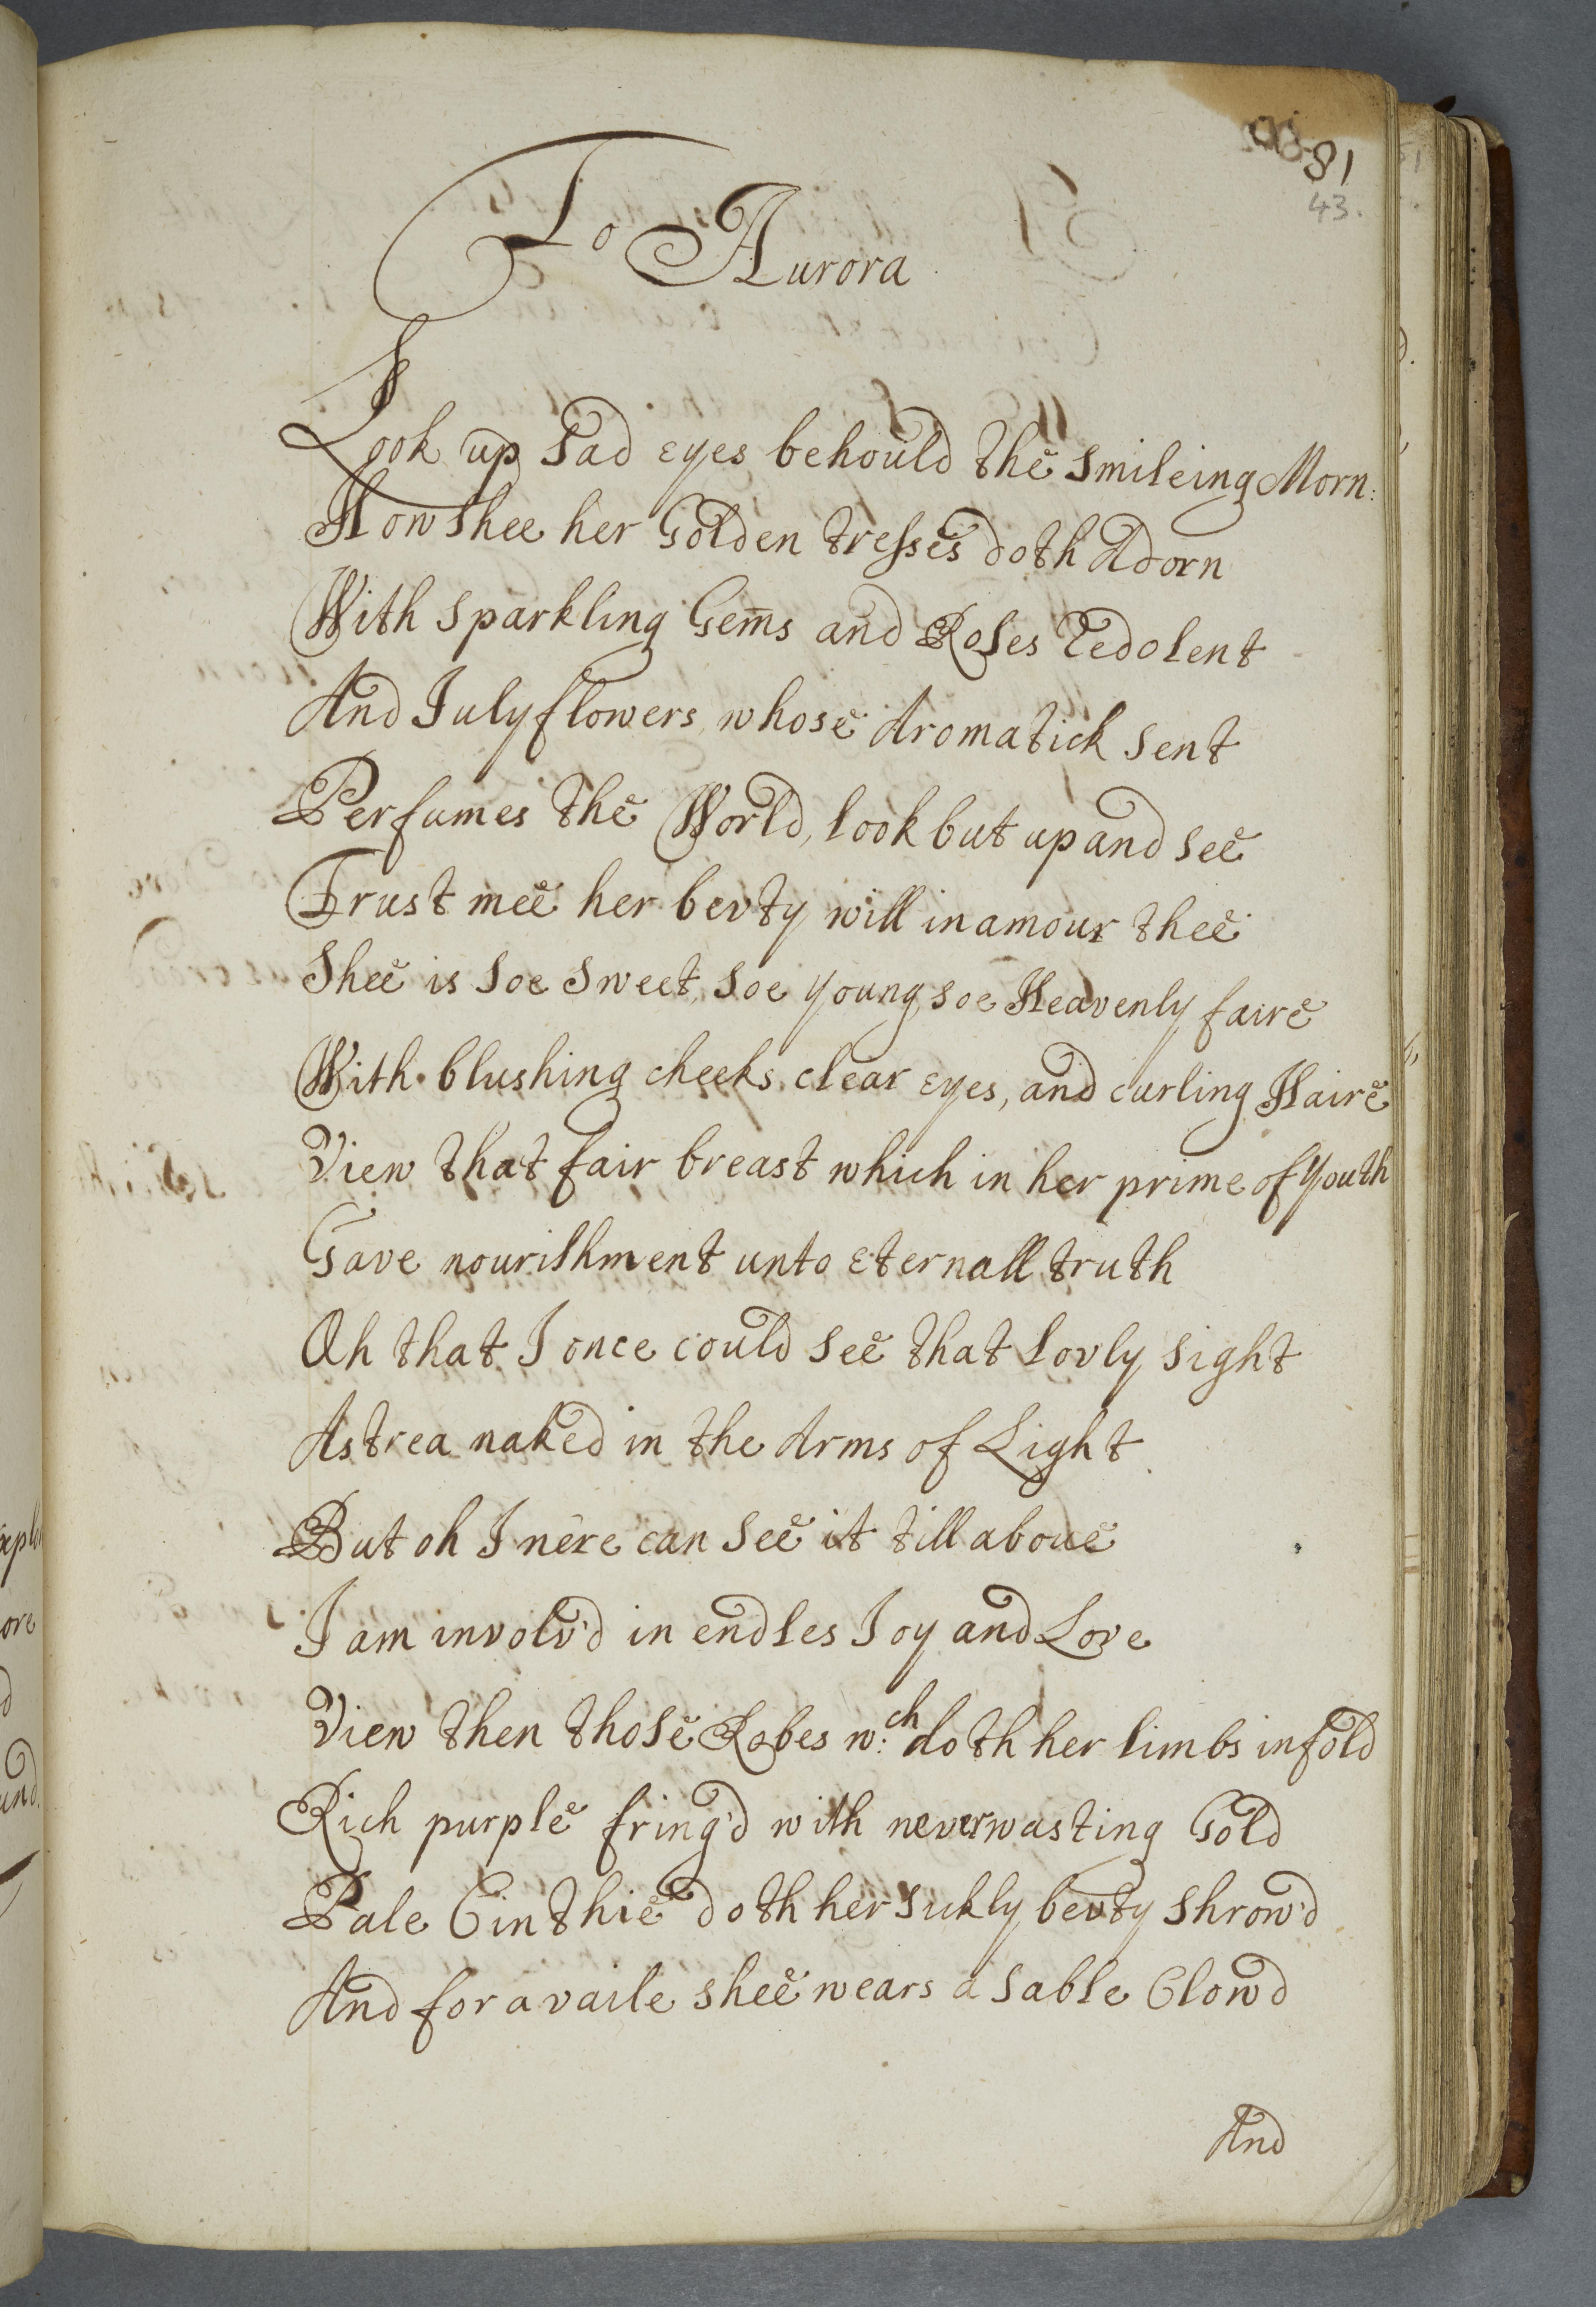 81
43.
To Aurora
Look up sad eyes behould the smileing Morn:
How shee her Golden tresses doth Adorn
With sparkling Gem̄s and Roses Redolent
And Julyflowers whose Aromatick sent
Perfumes the World, look but up and see
Trust mee her bevty will inamour thee
Shee is soe sweet, soe young, soe Heavenly faire
With blushing cheeks, clear eyes, and curling Haire
View that fair breast which in her prime of Youth
Gave nourishment unto eternall truth
Oh that I once could see that lovly sight
Astrea naked in the Arms of Light
But oh I nere can see it till aboue
I am involv'd in endles Joy and Love
View then those Robes w:ch doth her limbs infold
Rich purple fring'd with neverwasting Gold
Pale Cinthie doth her sickly bevty shrow'd
And for a vaile shee wears a sable Clowd
And